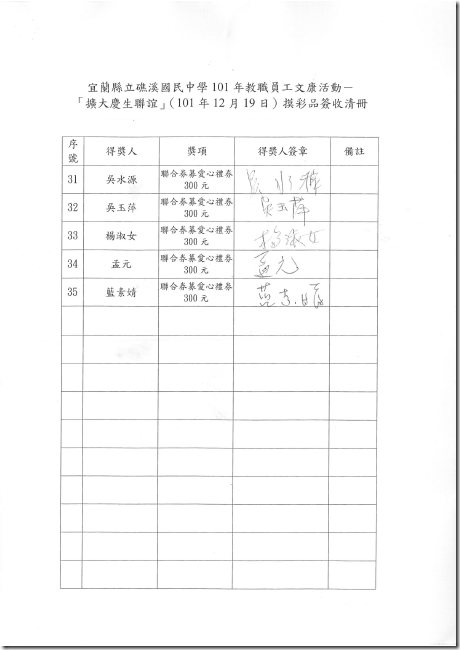 宜蘭縣立礁溪國民中學 101 年教職員工文康活動－
「擴大慶生聯誼」（101 年 12 月 19 日）摸彩品簽收清冊
序號 得獎人 獎項 得獎人簽章 備註
31 吳水源 聯合券募愛心禮券 300 元 吳水源
32 吳玉萍 聯合券募愛心禮券 300 元 吳玉萍
33 楊淑女 聯合券募愛心禮券 300 元 楊淑女
34 孟元 聯合券募愛心禮券 300 元 孟元
35 藍素婧 聯合券募愛心禮券 300 元